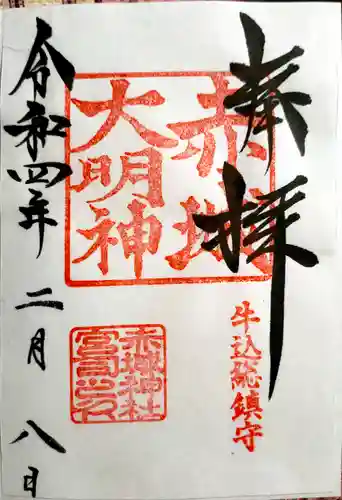 奉拝
赤城
大明神
牛込総鎮守
赤城神社
宮司之印
令和四年 二月 八日